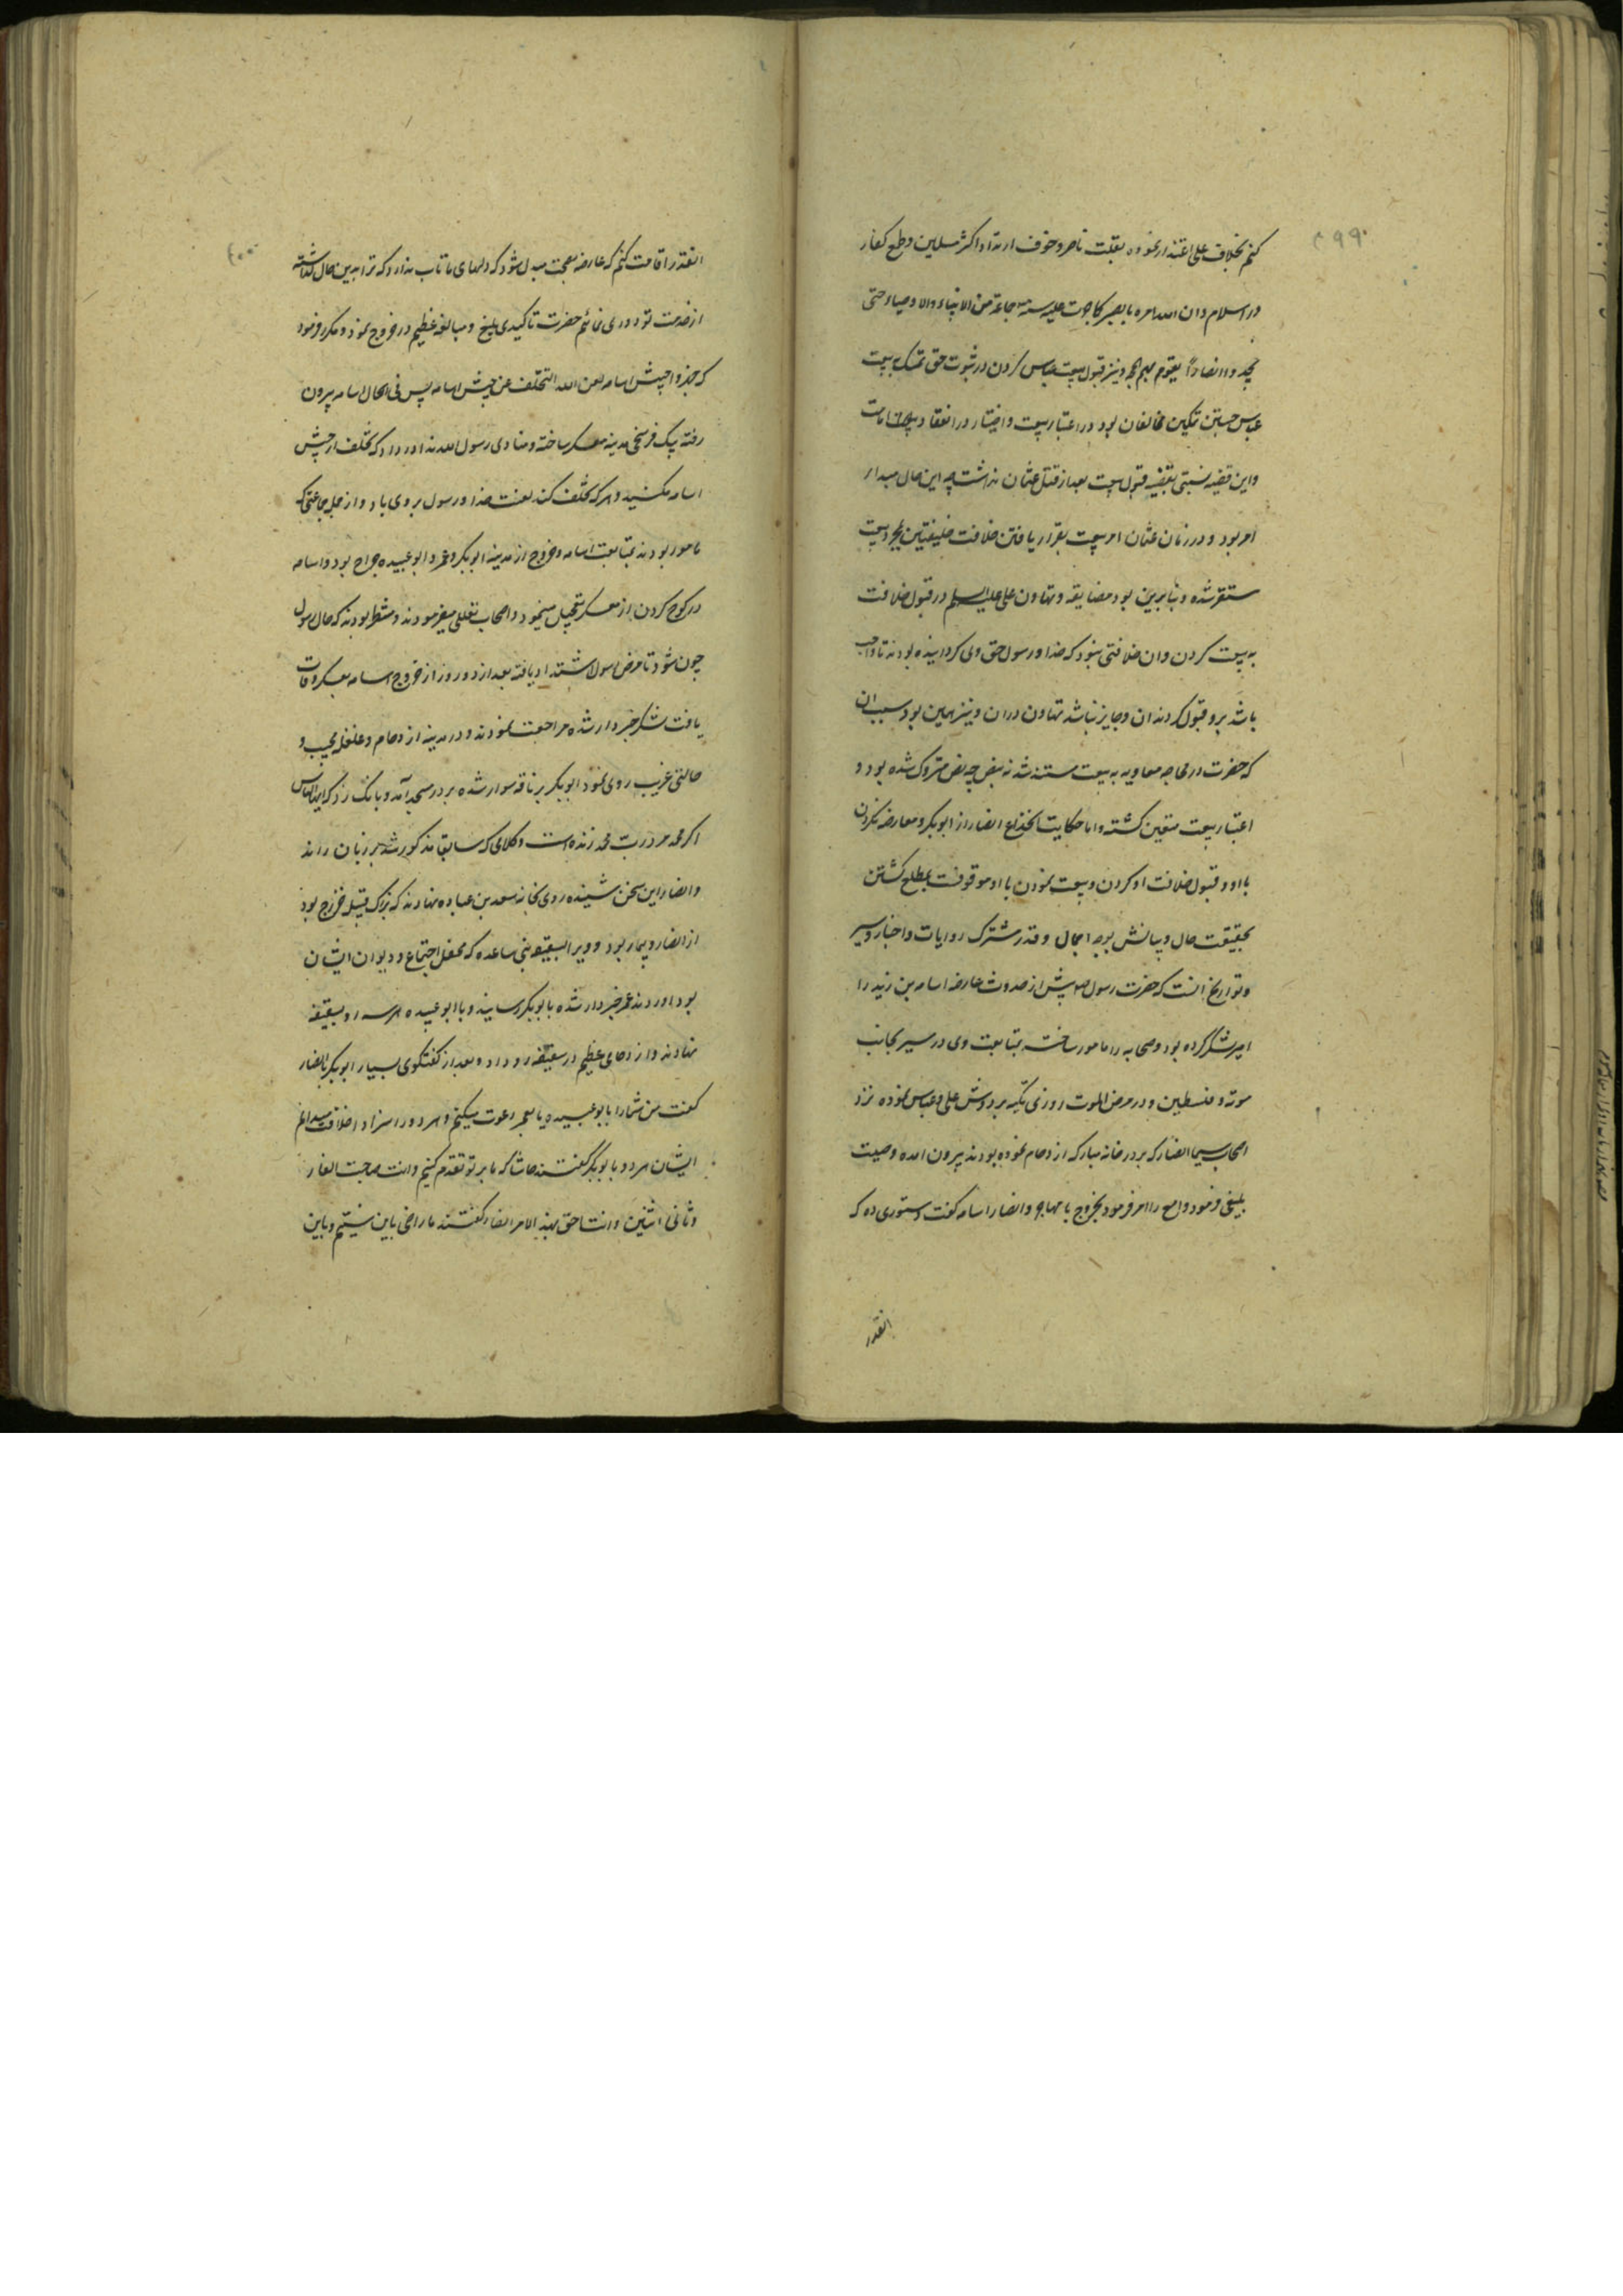 ۳۹۹
کنم بخلاف علی اعتذار نموده بقلت ناصر و خوف ارتداد اکثر مسلمین و طمع کفار
در اسلام و ان الله امره بالصبر کما جرت علیه سنه جماعة من الانبیاء والاوصیاء حتی
یجد و انصاراً یقوم بهم الحجه و نیز قبول بیعت عباس کردن در ثبوت حق تمسک به بیعت
عباس جستن تمکین مخالفان بود در اعتبار بیعت و اختیار در انعقاد امامت
و این قضیه نسبتی بقضیه قبول بیعت بعد از قتل عثمان نداشت چه این حال مبداء
امر بود و در زمان عثمان امر بیعت بقرار یافتن خلافت خلیفتین بمجرد بیعت
مستقر شده و بنابرین بود مضایقه و تهاون علی علیه السلم در قبول خلافت
به بیعت کردن و ان خلافتی نبود که خدا و رسول حق وی گردانیده بودند تا واجب
باشد برو قبول کردن ان و جایز نباشد تهاون دران و نیز همین بود سبب ان
که حضرت در محاجه معاویه به بیعت مستند شد نه بنص چه نص متروک شده بود و
اعتبار بیعت متعین گشته و اما حکایت انخداع انصار از ابوبکر و معارضه نکردن
با او و قبول خلافت او کردن و بیعت نمودن با او موقوفست بمطلع گشتن
بحقیقت حال و بیانش بوجه اجمال و قدر مشترک روایات و اخبار و سیر
و تواریخ انست که حضرت رسول ص پیش از حدوث عارضه اسامه بن زید را
امیر لشکر کرده بود و صحابه را مامور ساخته بمتابعت وی در سیر بجانب
موته و فلسطین و در مرض الموت روزی تکیه بر دوش علی و عباس نموده نزد
اصحاب سیما انصار که بر در خانه مبارکه ازدحام نموده بودند بیرون امده وصیت
بلیغی فرمود و امع را امر فرمود بخروج با مهاجر و انصار اسامه گفت دستوری ده که
انقدر
۴۰۰
انقدر اقامت کنم که عارضه بصحت مبدل شود که دلهای ما تاب ندارد که ترا بدین حال گذاشته
از خدمت تو دوری نمائیم حضرت تاکیدی بلیغ و مبالغه عظیم در خروج نمود و مکرر فرمود
که جهزوا جیش اسامه لعن الله المتخلف عن جیش اسامه پس فی الحال اسامه بیرون
رفته بیک فرسخی مدینه معسکر ساخته و منادی رسول الله ندا در داد که تخلف از جیش
اسامه مکنید و هر که تخلف کند لعنت خدا و رسول بر وی باد و از جمله جماعتی که
مامور بودند بمتابعت اسامه و خروج از مدینه ابوبکر و عمر و ابو عبیده جراح بود و اسامه
در کوچ کردن از معسکر تعجیل مینمود و اصحاب تعللی میفرمودند و منتظر بودند که حال رسول
چون شود تا مرض رسول اشتداد یافته بعد از دو روز از خروج اسامه بمعسکر وفات
یافت لشکر خبردار شده مراجعت نمودند و در مدینه ازدحام و غلغله عجیب و
حالتی غریب روی نمود ابوبکر بر ناقه سوار شده بر در مسجد آمد و بانک زد که ایها الناس
اگر محمد مرد رب محمد زنده است و کلامی که سابقا مذکور شد بر زبان راند
و انصار این سخن شنیده روی بخانه سعد بن عباده نهادند که بزرک قبیله خزرج بود
از انصار و بیمار بود و ویرا بسقیفه بنی ساعده که محفل اجتماع و دیوان ایشان
بود اوردند عمر خبردار شده بابوبکر رسانید و با ابو عبیده هر سه رو بسقیفه
نهادند و ازدحامی عظیم در سقیفه رو داد و بعد از گفتگوی بسیار ابوبکر بانصار
گفت من شمارا بابو عبیده یا بعمر دعوت میکنم و هر دو را سزاوار خلافت میدانم
ایشان هر دو بابوبکر گفتند حاشا که ما بر تو تقدم کنیم و انت صاحب الغار
و ثانی اثنین و انت احق بهذا الامر انصار گفتند ما راضی باین نیستیم و باین